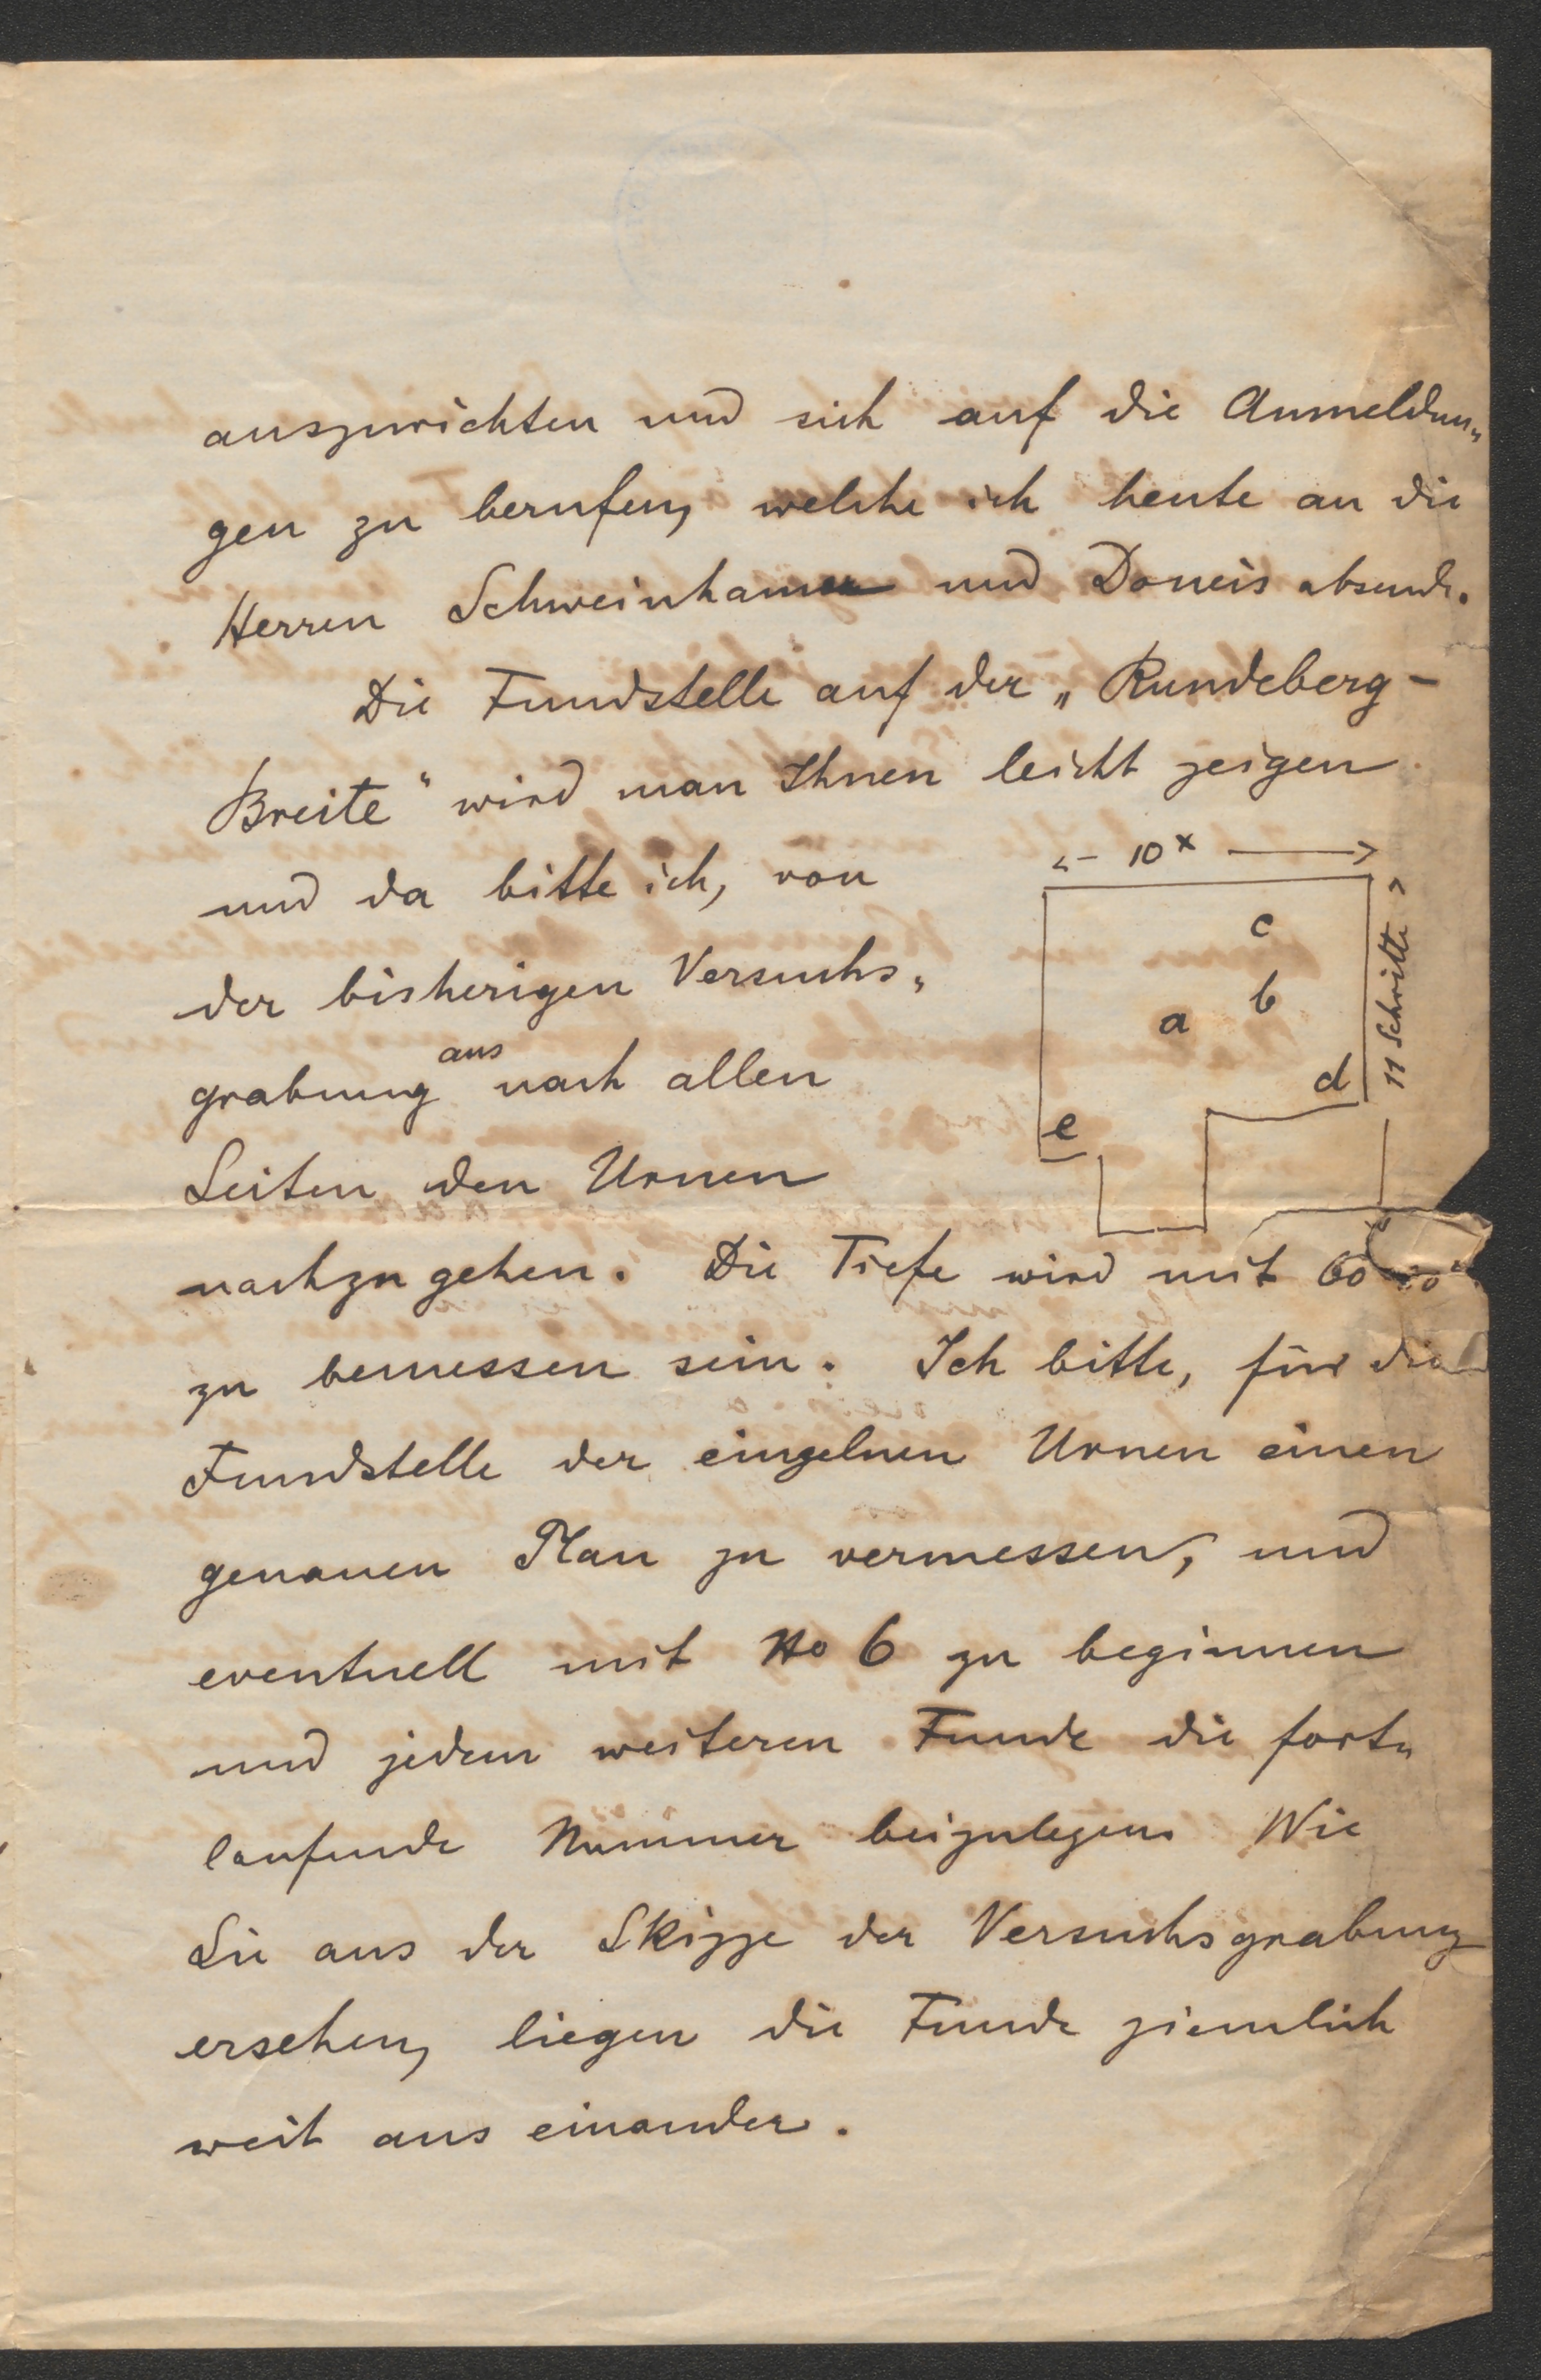 auszurichten und sich auf die Anmeldun„
gen zu berufen, welche ich heute an die
Herren Schweinhamer und Doneis absende.
Die Fundstelle auf der „Rundeberg-
Breite“ wird man Ihnen leicht zeigen
und da bitte ich, von
der bisherigen Versuchs„
grabung aus nach allen
Seiten den Urnen
nachzugehen. Die Tiefe wird mit 60
zu bemessen sein. Ich bitte, für die
Fundstelle der einzelnen Urnen einen
genauen Plan zu vermessen, und
eventuell mit No 6 zu beginnen
und jedem weiteren Funde die fort„
laufende Nummer beizulegen. Wie
Sie aus der Skizze der Versuchsgrabung
ersehen, liegen die Funde ziemlich
weit aus einander.
10 x
11 Schritte
c
b
a
d
e